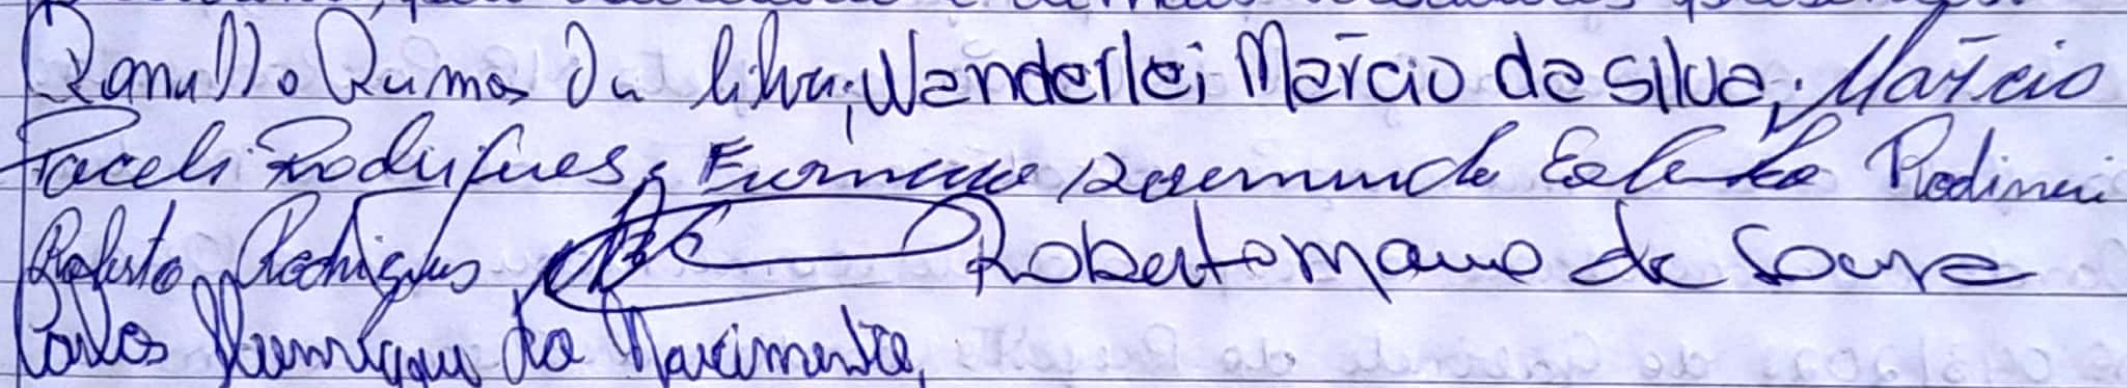 Ranullo Ramos da Silva; Wanderlei Márcio da Silva; Márcio
Paceli Rodrigues; Raimundo Rodinei
Roberto Rodrigues, Roberto Mauro de Souza
Carlos Henrique do Nascimento,